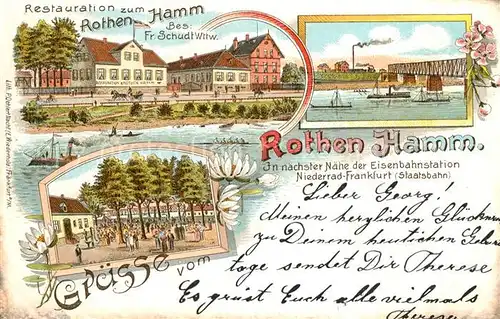 Restauration zum
Rothen-Hamm
Bes.
Fr. Schudt Witw.
Rothen Hamm.
In nächster Nähe der Eisenbahnstation
Niederrad-Frankfurt (Staatsbahn).
Lieber Georg!
Meinen herzlichen Glückwun
zu Deinem heutigen Gebur
tage sendet Dir Therese
Es grüst Euch alle vielmals
Therese
Grüsse vom